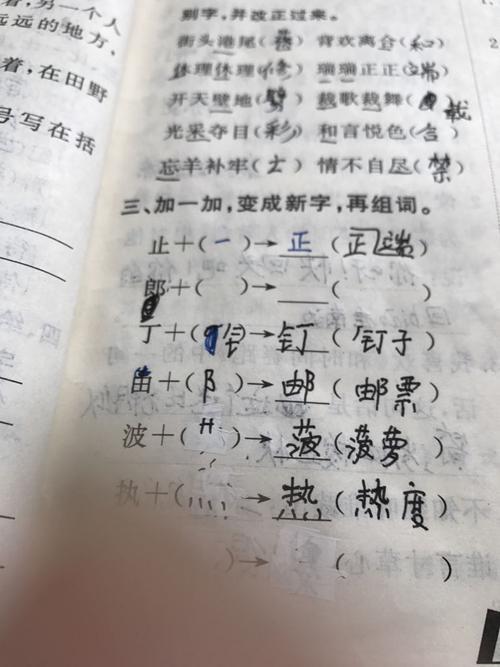 着,另一个人
远远的地方、
着,在田野
号写在括
别字,并改正过来。
街头港尾(巷) 背欢离合(和)
休理休理(修) 瑞瑞正正(端)
开天壁地(劈) 裁歌裁舞(载)
光采夺目(彩) 和言悦色(言)
忘羊补牢(亡) 情不自尽(禁)
三、加一加,变成新字,再组词。
止+(一)→正(正端)
郎+( )→ ( )
丁+(钅)→钉(钉子)
由+(阝)→邮(邮票)
波+(艹)→菠(菠萝)
执+(灬)→热(热度)
)→ ( )